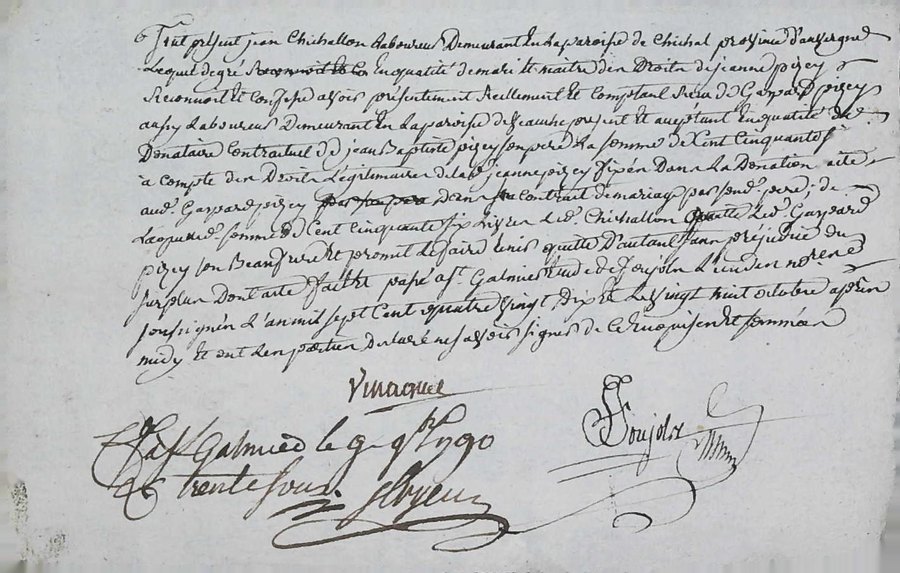 fut présent jean Chichallon Laboureur Demeurant En La paroisse de Chichal province d'auvergne
Lequel de gré Reconnoit Et Co En qualité de mari Et maitre des Droits de jeanne pizey
Reconnoit Et Confesse avoir présentement Réellement Et Comptant Receu de Gaspard pizey
aussy Laboureur Demeurant En La paroisse de present Et aceptant En qualité de
Donataire Contractuel de jean Baptiste pizey son pere La somme de Cent Cinquante six
a Compte des Droits Légitimaires de lad. jeanne pizey fixés Dans La Donation acte
aud. Gaspard pizey dans Contrat de mariage par sond. pere ; de
Laquelle somme de Cent Cinquante six Livres Led. Chichallon quitte Led. Gaspard
pizey son Beaufrere Et promet Le faire tenir quitte D'autant sans préjudice du
surplus Dont acte fait Et passé a St. Galmier Etude de foujols L'un des no.res
soussignés L'an mil sept Cent quatre vingt dix Et Le vingt huit octobre après
midy Et ont Les parties déclaré ne savoir signer de Ce Enquises Et sommées
Vinaquer
foujols
a St Galmier le 9 1790
trente sous